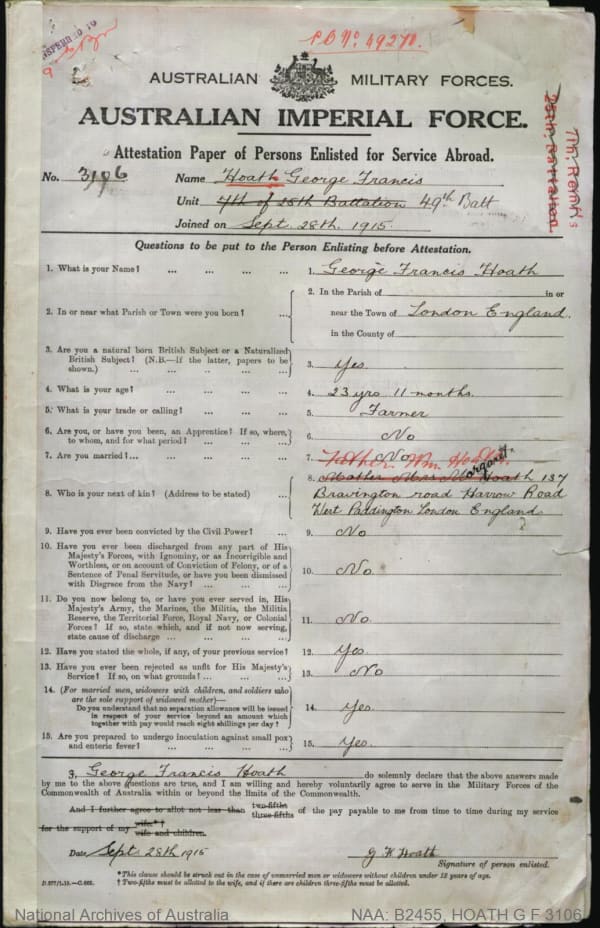 P.B. No. 49270.
AUSTRALIAN MILITARY FORCES.
AUSTRALIAN IMPERIAL FORCE.
Attestation Paper of Persons Enlisted for Service Abroad.
No. 3106 Name Hoath George Francis
Unit 4th of 25th Battalion 49th Batt
Joined on Sept. 28th. 1915.
25th. Battalion
7th. Reinf's
Questions to be put to the Person Enlisting before Attestation.
1. What is your Name? ... ... ... ... 1. George Francis Hoath
2. In or near what Parish or Town were you born? ... 2. In the Parish of in or
near the Town of London England.
in the County of
3. Are you a natural born British Subject or a Naturalized
British Subject? (N.B.—if the latter, papers to be
shown.) ... ... ... ... 3. Yes.
4. What is your age? ... ... ... 4. 23 yrs 11 months.
5. What is your trade or calling? ... ... ... 5. Farmer
6. Are you, or have you been, an Apprentice? If so, where,
to whom, and for what period? ... ... ... 6. No
7. Are you married? ... ... ... ... 7. No
Father Wm. Hoath.
8. Who is your next of kin? (Address to be stated) ... 8. Mother Mrs Margaret Hoath 137
Bravington road Harrow Road
West Paddington London England
9. Have you ever been convicted by the Civil Power? ... 9. No
10. Have you ever been discharged from any part of His
Majesty's Forces, with Ignominy, or as Incorrigible and
Worthless, or on account of Conviction of Felony, or of a
Sentence of Penal Servitude, or have you been dismissed
with Disgrace from the Navy? ... ... ... 10. No.
11. Do you now belong to, or have you ever served in, His
Majesty's Army, the Marines, the Militia, the Militia
Reserve, the Territorial Force, Royal Navy, or Colonial
Forces? If so, state which, and if not now serving,
state cause of discharge ... ... ... ... 11. No.
12. Have you stated the whole, if any, of your previous service? 12. Yes.
13. Have you ever been rejected as unfit for His Majesty's
Service? If so, on what grounds? ... ... ... 13. No
14. (For married men, widowers with children, and soldiers who
are the sole support of widowed mother)—
Do you understand that no separation allowance will be issued
in respect of your service beyond an amount which
together with pay would reach eight shillings per day? 14. Yes.
15. Are you prepared to undergo inoculation against small pox
and enteric fever? ... ... ... ... 15. Yes.
I, George Francis Hoath do solemnly declare that the above answers made
by me to the above questions are true, and I am willing and hereby voluntarily agree to serve in the Military Forces of the
Commonwealth of Australia within or beyond the limits of the Commonwealth.
And I further agree to allot not less than two-fifths three-fifths of the pay payable to me from time to time during my service
for the support of my wife*† wife and children.
Date Sept. 28th 1915 G. F. Hoath
Signature of person enlisted.
*This clause should be struck out in the case of unmarried men or widowers without children under 18 years of age.
†Two-fifths must be allotted to the wife, and if there are children three-fifths must be allotted.
National Archives of Australia NAA: B2455, HOATH G F 3106